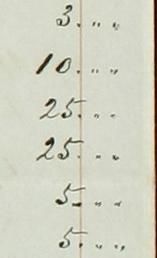 3. " "
10. " "
25 " "
25 " "
5. " "
5. " "